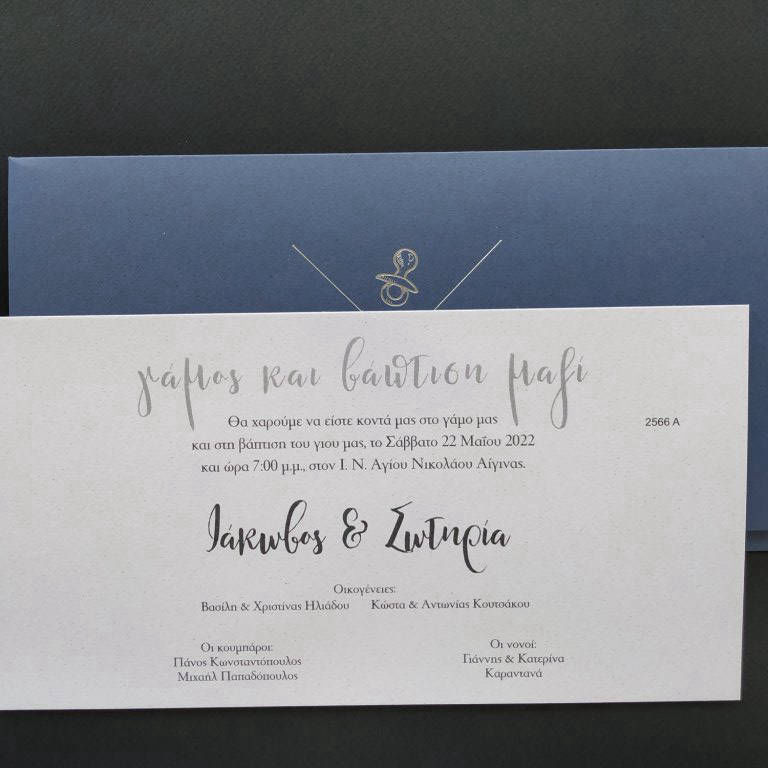 γάμος και βάπτιση μαζί
Θα χαρούμε να είστε κοντά μας στο γάμο μας
και στη βάπτιση του γιου μας, το Σάββατο 22 Μαΐου 2022
και ώρα 7:00 μ.μ., στον Ι. Ν. Αγίου Νικολάου Αίγινας.
2566 A
Ιάκωβος & Σωτηρία
Οικογένειες:
Βασίλη & Χριστίνας Ηλιάδου Κώστα & Αντωνίας Κουτσάκου
Οι κουμπάροι:
Πάνος Κωνσταντόπουλος
Μιχαήλ Παπαδόπουλος
Οι νονοί:
Γιάννης & Κατερίνα
Καραντανά